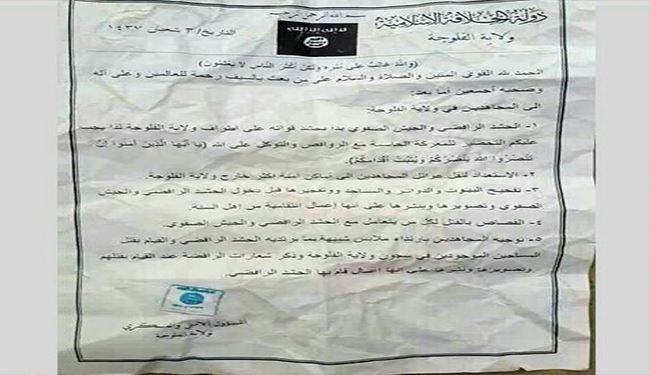 بسم الله الرحمن الرحيم
دولة الخلافة الإسلامية
ولاية الفلوجة
التاريخ/ ٣ شعبان ١٤٣٧
(والله غالب على أمره ولكن أكثر الناس لا يعلمون)
الحمد لله القوي المتين والصلاة والسلام على من بعث بالسيف رحمة للعالمين وعلى آله
وصحبه أجمعين أما بعد:
الى المجاهدين في ولاية الفلوجة:
١- الحشد الرافضي والجيش الصفوي بدا بحشد قواته على اطراف ولاية الفلوجة لذا يجب
عليكم التحضير للمعركة الحاسمة مع الروافض والتوكل على الله (يا أيها الذين آمنوا إن
تنصروا الله ينصركم ويثبت أقدامكم).
٢- الاستعداد لنقل عوائل المجاهدين الى اماكن امنة اكثر خارج ولاية الفلوجة.
٣- تفخيخ البيوت والدوائر والمساجد وتفجيرها قبل دخول الحشد الرافضي والجيش
الصفوي وتصويرها ونشرها على انها اعمال انتقامية من اهل السنة.
٤- القصاص بالقتل لكل من يتعامل مع الحشد الرافضي والجيش الصفوي.
٥- توجيه المجاهدين بارتداء ملابس شبيهة بما يرتديه الحشد الرافضي والقيام بقتل
المساجين الموجودين في سجون ولاية الفلوجة وذكر شعارات الرافضة عند القيام بقتلهم
وتصويرها ونشرها على انها اعمال قام بها الحشد الرافضي.
المسؤول الأمني والعسكري
ولاية الفلوجة